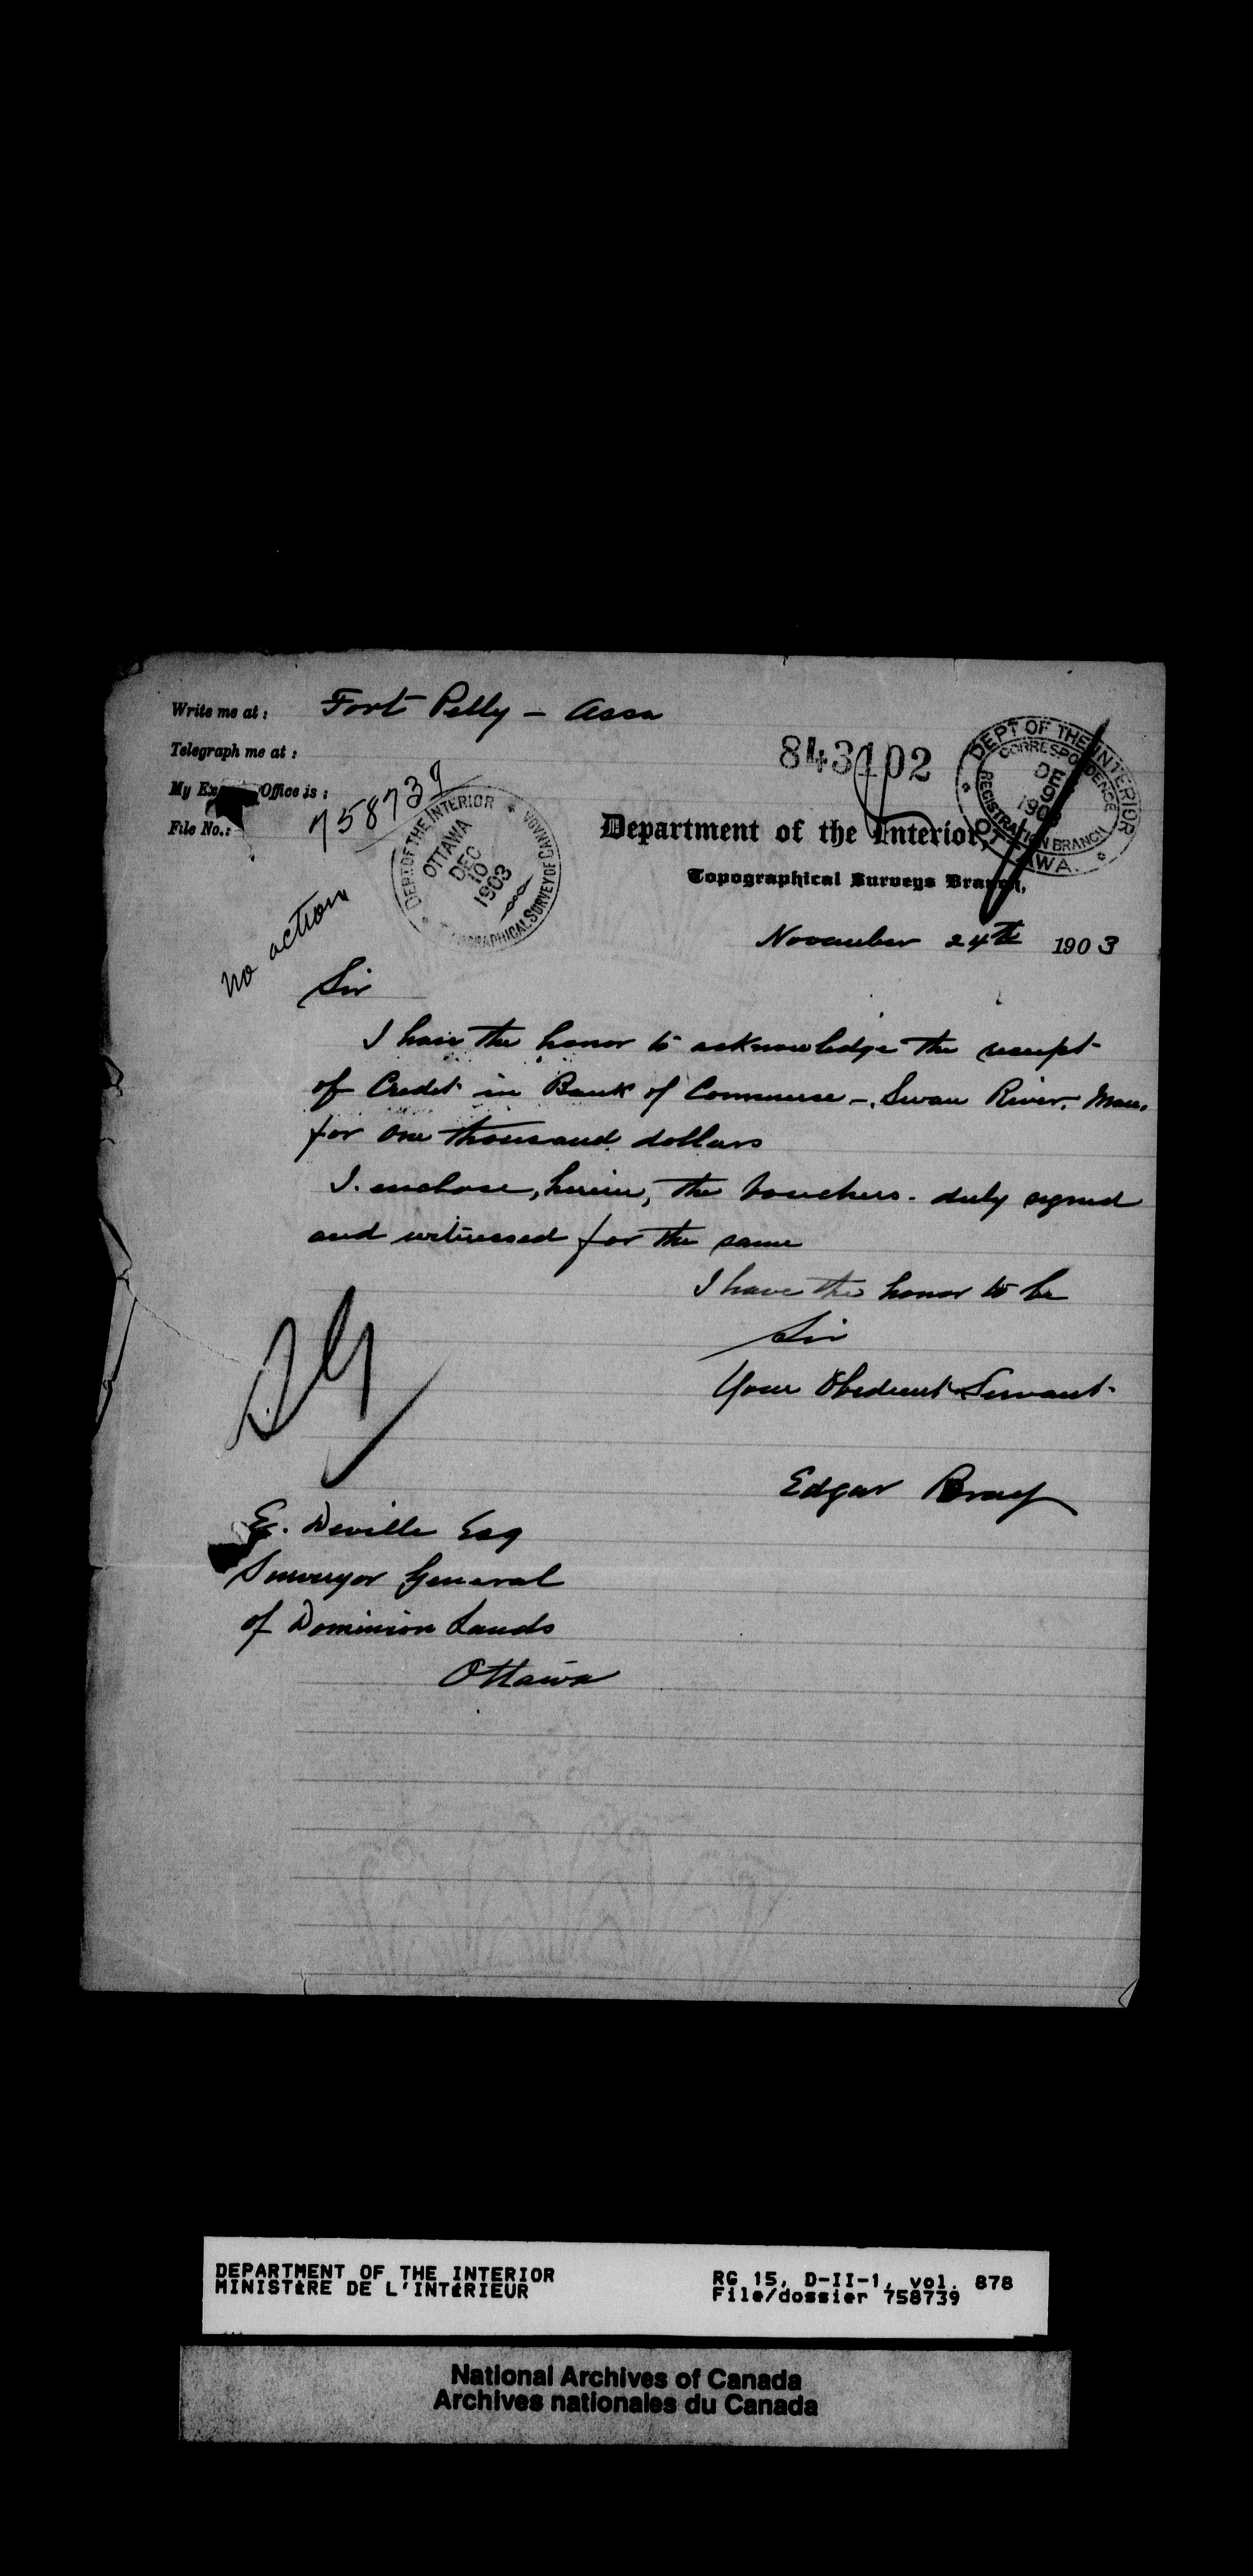 Write me at: Fort Pelly - Assa
Telegraph me at:
My Ex Office is:
File No.: 758739
843102
DEPT OF THE INTERIOR
CORRESPONDENCE
DE
190
REGISTRATION BRANCH
OTTAWA.
DEPT. OF THE INTERIOR
OTTAWA
DEC
10
1903
TOPOGRAPHICAL SURVEY OF CANADA
Department of the Interior,
Topographical Surveys Branch,
no action
November 24th 1903
Sir
I have the honor to acknowledge the receipt
of Credit in Bank of Commerce - Swan River, Man.
for one thousand dollars
I enclose, herein, the vouchers. duly signed
and witnessed for the same
I have the honor to be
Sir
Your Obedient Servant
Edgar Bray
E. Deville Esq
Surveyor General
of Dominion Lands
Ottawa
DEPARTMENT OF THE INTERIOR
MINISTÈRE DE L'INTÉRIEUR
RG 15, D-II-1, vol. 878
File/dossier 758739
National Archives of Canada
Archives nationales du Canada